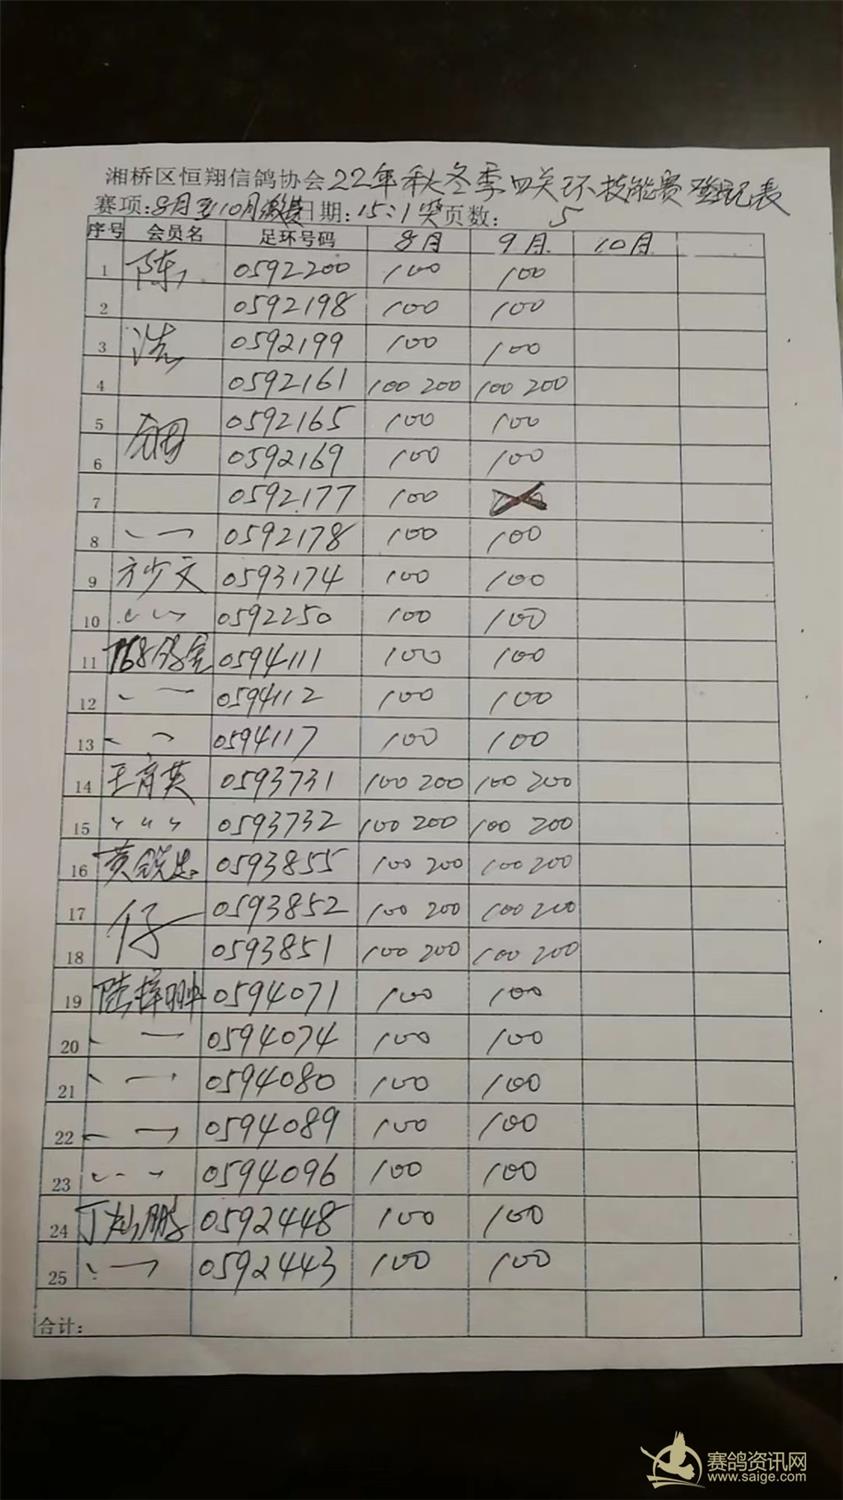 湘桥区恒翔信鸽协会22年秋冬季四关环技能赛登记表
赛项:8月至10月缴费日期:15:1 页数: 5
序号 会员名 足环号码 8月 9月 10月
1 陈 0592200 100 100
2 0592198 100 100
3 浩 0592199 100 100
4 0592161 100 200 100 200
5 0592165 100 100
6 0592169 100 100
7 0592177 100
8 0592178 100 100
9 方少文 0593174 100 100
10 0592250 100 100
11 0594111 100 100
12 0594112 100 100
13 0594117 100 100
14 王育英 0593731 100 200 100 200
15 〃 〃 〃 0593732 100 200 100 200
16 黄锐忠 0593855 100 200 100 200
17 仔 0593852 100 200 100 200
18 0593851 100 200 100 200
19 陆梓翀 0594071 100 100
20 0594074 100 100
21 0594080 100 100
22 0594089 100 100
23 0594096 100 100
24 丁灿鹏 0592448 100 100
25 0592443 100 100
合计:
赛鸽资讯网
www.saige.com